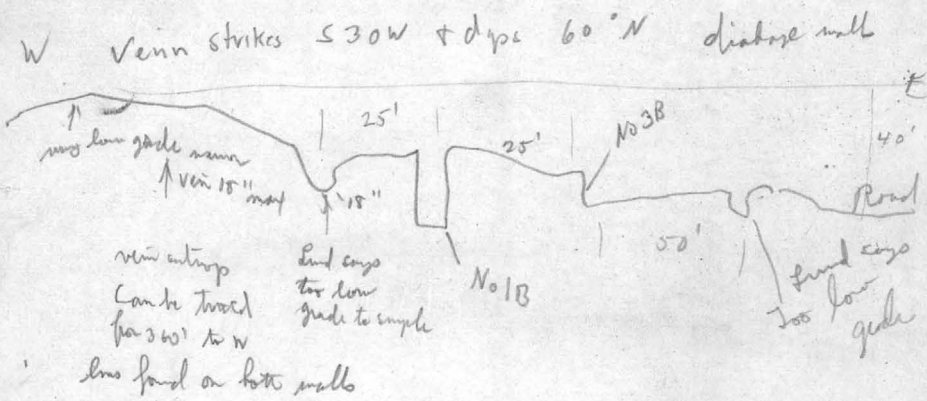 W Vein strikes S30W + dips 60°N diabase wall
E
25'
25'
No3B
40'
very low grade narrow
Vein 18" max
18"
Road
50'
vein outcrop
Can be traced
for 360' to W
Lund says
too low
grade to sample
No1B
Lund says
Too low
grade
found on both walls